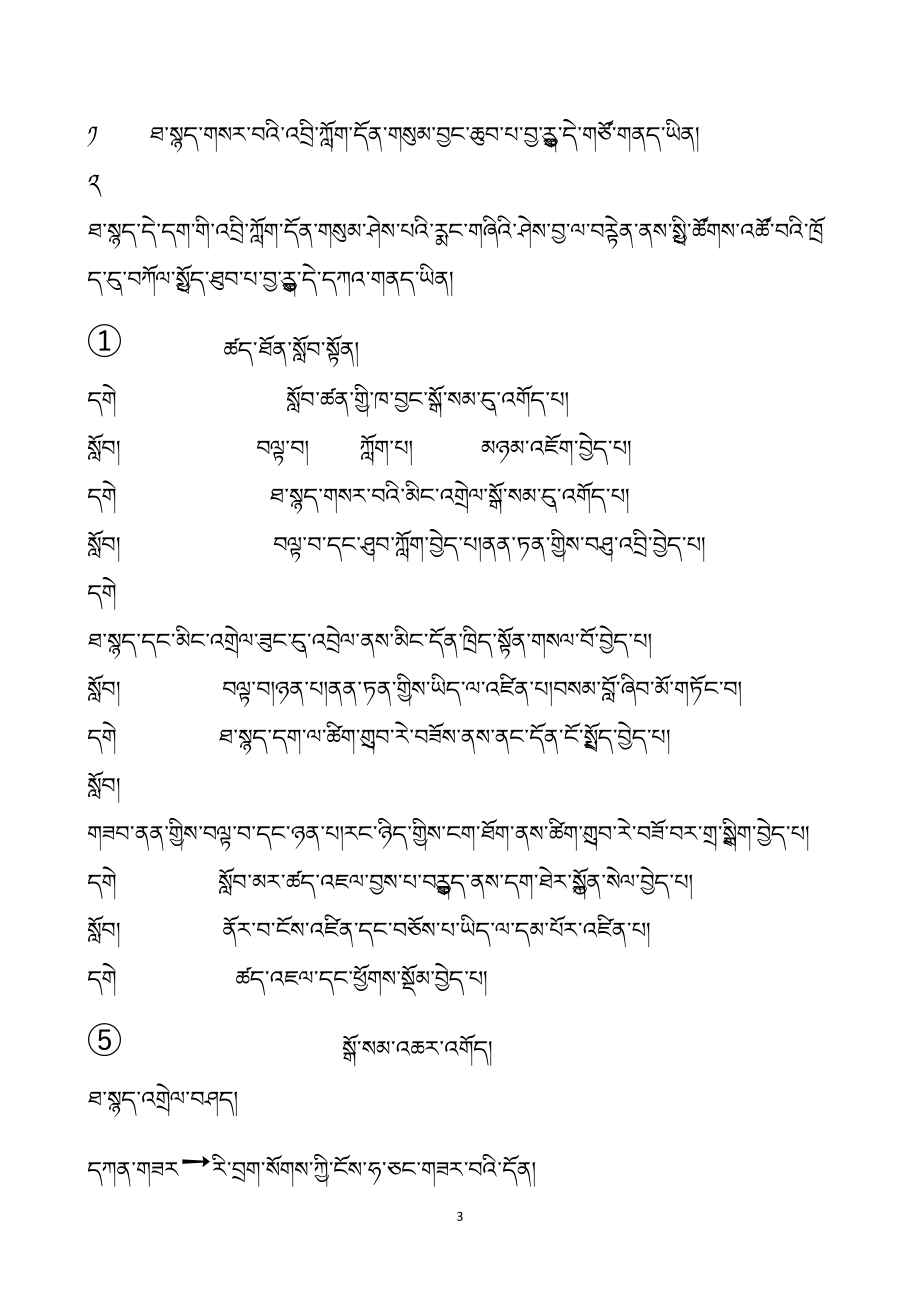 ༡ ཐ་སྙད་གསར་བའི་འབྲི་ཀློག་དོན་གསུམ་བྱང་ཆུབ་པ་བྱ་རྒྱུ་དེ་གཙོ་གནད་ཡིན།
༢
ཐ་སྙད་དེ་དག་གི་འབྲི་ཀློག་དོན་གསུམ་ཤེས་པའི་རྨང་གཞིའི་ཤེས་བྱ་ལ་བརྟེན་ནས་སྤྱི་ཚོགས་འཚོ་བའི་ཁྲོ
ད་དུ་བཀོལ་སྤྱོད་ཐུབ་པ་བྱ་རྒྱུ་དེ་དཀའ་གནད་ཡིན།
① ཚད་ཐོན་སློབ་སྟོན།
དགེ སློབ་ཚན་གྱི་ཁ་བྱང་སྒྲོ་སམ་དུ་འགོད་པ།
སློབ། བལྟ་བ། ཀློག་པ། མཉམ་འཇོག་བྱེད་པ།
དགེ ཐ་སྙད་གསར་བའི་མིང་འགྲེལ་སྒྲོ་སམ་དུ་འགོད་པ།
སློབ། བལྟ་བ་དང་ཤུབ་ཀློག་བྱེད་པ།ནན་ཏན་གྱིས་བཤུ་འབྲི་བྱེད་པ།
དགེ
ཐ་སྙད་དང་མིང་འགྲེལ་ཟུང་དུ་འབྲེལ་ནས་མིང་དོན་ཁྲིད་སྟོན་གསལ་བོ་བྱེད་པ།
སློབ། བལྟ་བ།ཉན་པ།ནན་ཏན་གྱིས་ཡིད་ལ་འཛིན་པ།བསམ་བློ་ཞིབ་མོ་གཏོང་བ།
དགེ ཐ་སྙད་དག་ལ་ཚིག་གྲུབ་རེ་བཟོས་ནས་ནང་དོན་ངོ་སྤྲོད་བྱེད་པ།
སློབ།
གཟབ་ནན་གྱིས་བལྟ་བ་དང་ཉན་པ།རང་ཉིད་གྱིས་ངག་ཐོག་ནས་ཚིག་གྲུབ་རེ་བཟོ་བར་གྲ་སྒྲིག་བྱེད་པ།
དགེ སློབ་མར་ཚད་འཇལ་བྱས་པ་བརྒྱུད་ནས་དག་ཐེར་སྐྱོན་སེལ་བྱེད་པ།
སློབ། ནོར་བ་ངོས་འཛིན་དང་བཅོས་པ་ཡིད་ལ་དམ་པོར་འཛིན་པ།
དགེ ཚད་འཇལ་དང་ཕྱོགས་སྡོམ་བྱེད་པ།
⑤ སྒྲོ་སམ་འཆར་འགོད།
ཐ་སྙད་འགྲེལ་བཤད།
དཀན་གཟར➞རི་བྲག་སོགས་ཀྱི་ངོས་ཧ་ཅང་གཟར་བའི་དོན།
3